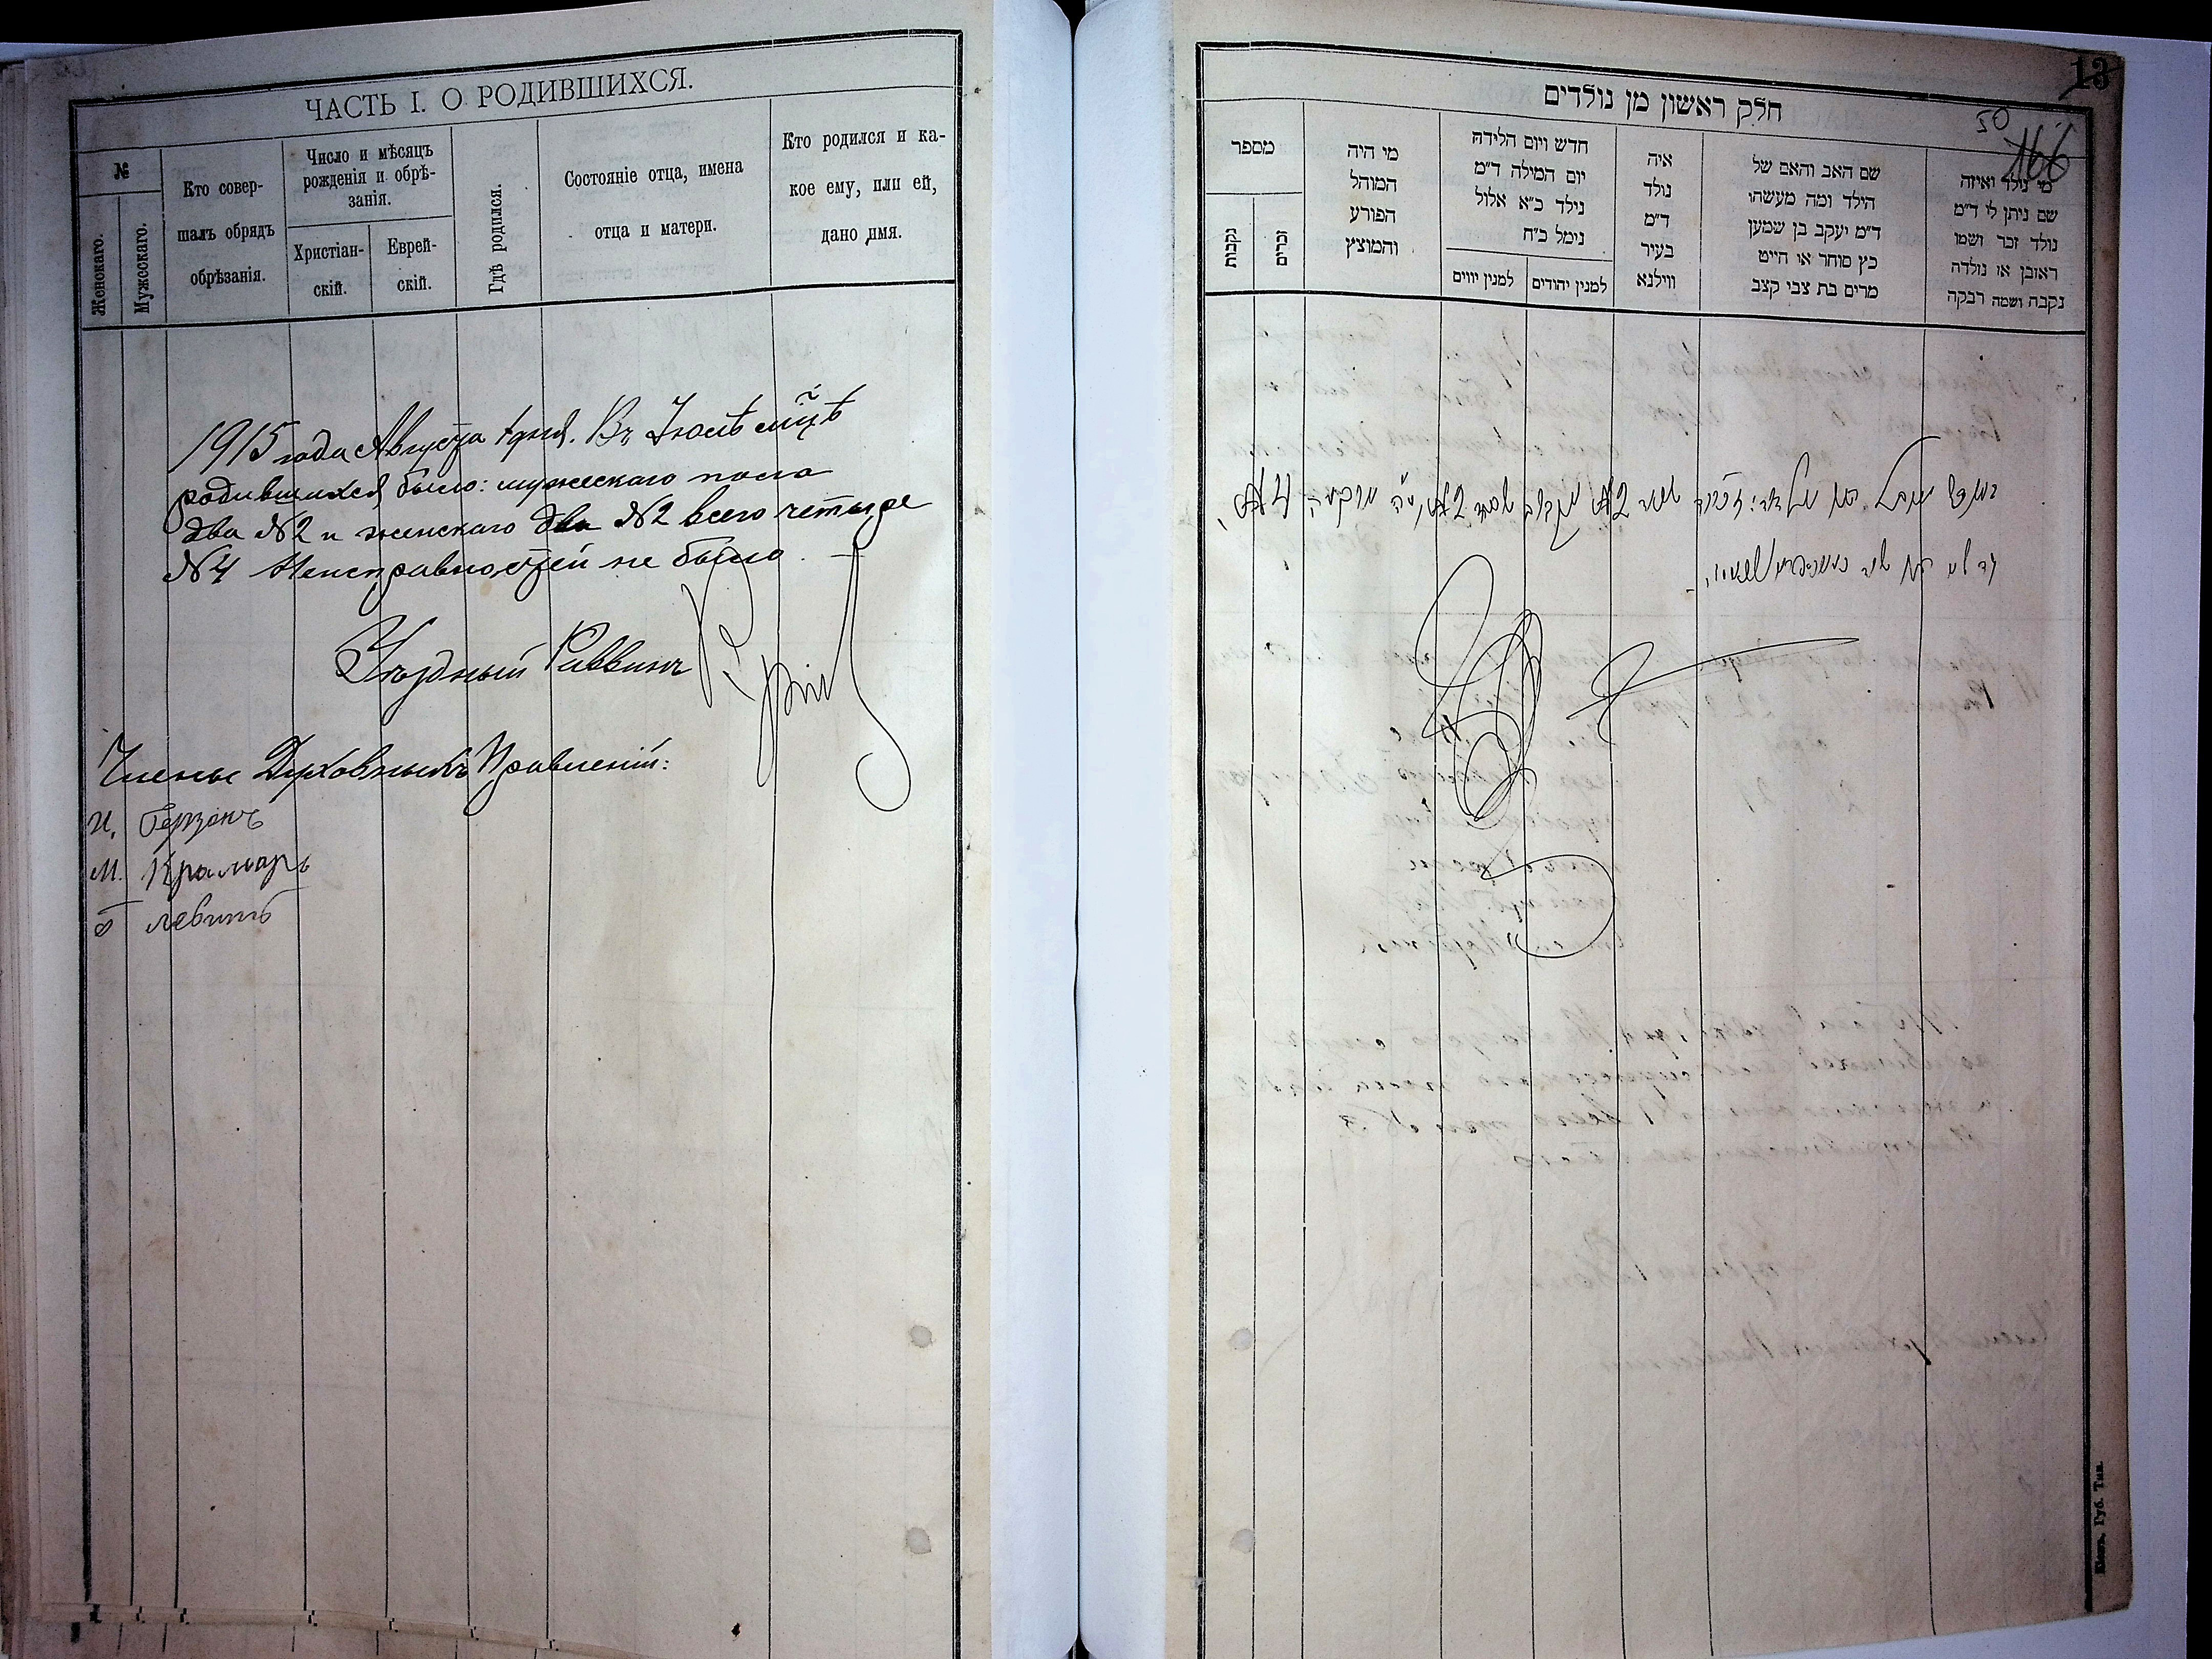 ЧАСТЬ I. О РОДИВШИХСЯ.
№
Женскаго.
Мужескаго.
Кто совер-
шалъ обрядъ
обрѣзанія.
Число и мѣсяцъ
рожденія и обрѣ-
занія.
Христіан-
скій.
Еврей-
скій.
Гдѣ родился.
Состояніе отца, имена
отца и матери.
Кто родился и ка-
кое ему, или ей,
дано имя.
1915 года Августа 1 дня. Въ Іюлѣ мцѣ
родившихся было: мужескаго пола
два №2 и женскаго два №2 всего четыре
№4 Неисправностей не было.
Уѣздный Раввинъ
Члены Духовныхъ Правленій:
И. Герзонъ
М. Крамаръ
Левитъ
13
50
166
חלק ראשון מן נולדים
מספר
נקבות
זכרים
מי היה
המוהל
הפורע
והמוצץ
חדש ויום הלידה
יום המילה ד״מ
נילד כ״א אלול
נימל כ״ח
למנין יווים
למנין יהודים
איה
נולד
ד״מ
בעיר
ווילנא
שם האב והאם של
הילד ומה מעשהו
ד״מ יעקב בן שמען
כץ סוחר או חייט
מרים בת צבי קצב
מי נולד ואיזה
שם ניתן לו ד״מ
נולד זכר ושמו
ראובן או נולדה
נקבה ושמה רבקה
Кіев. Губ. Тип.